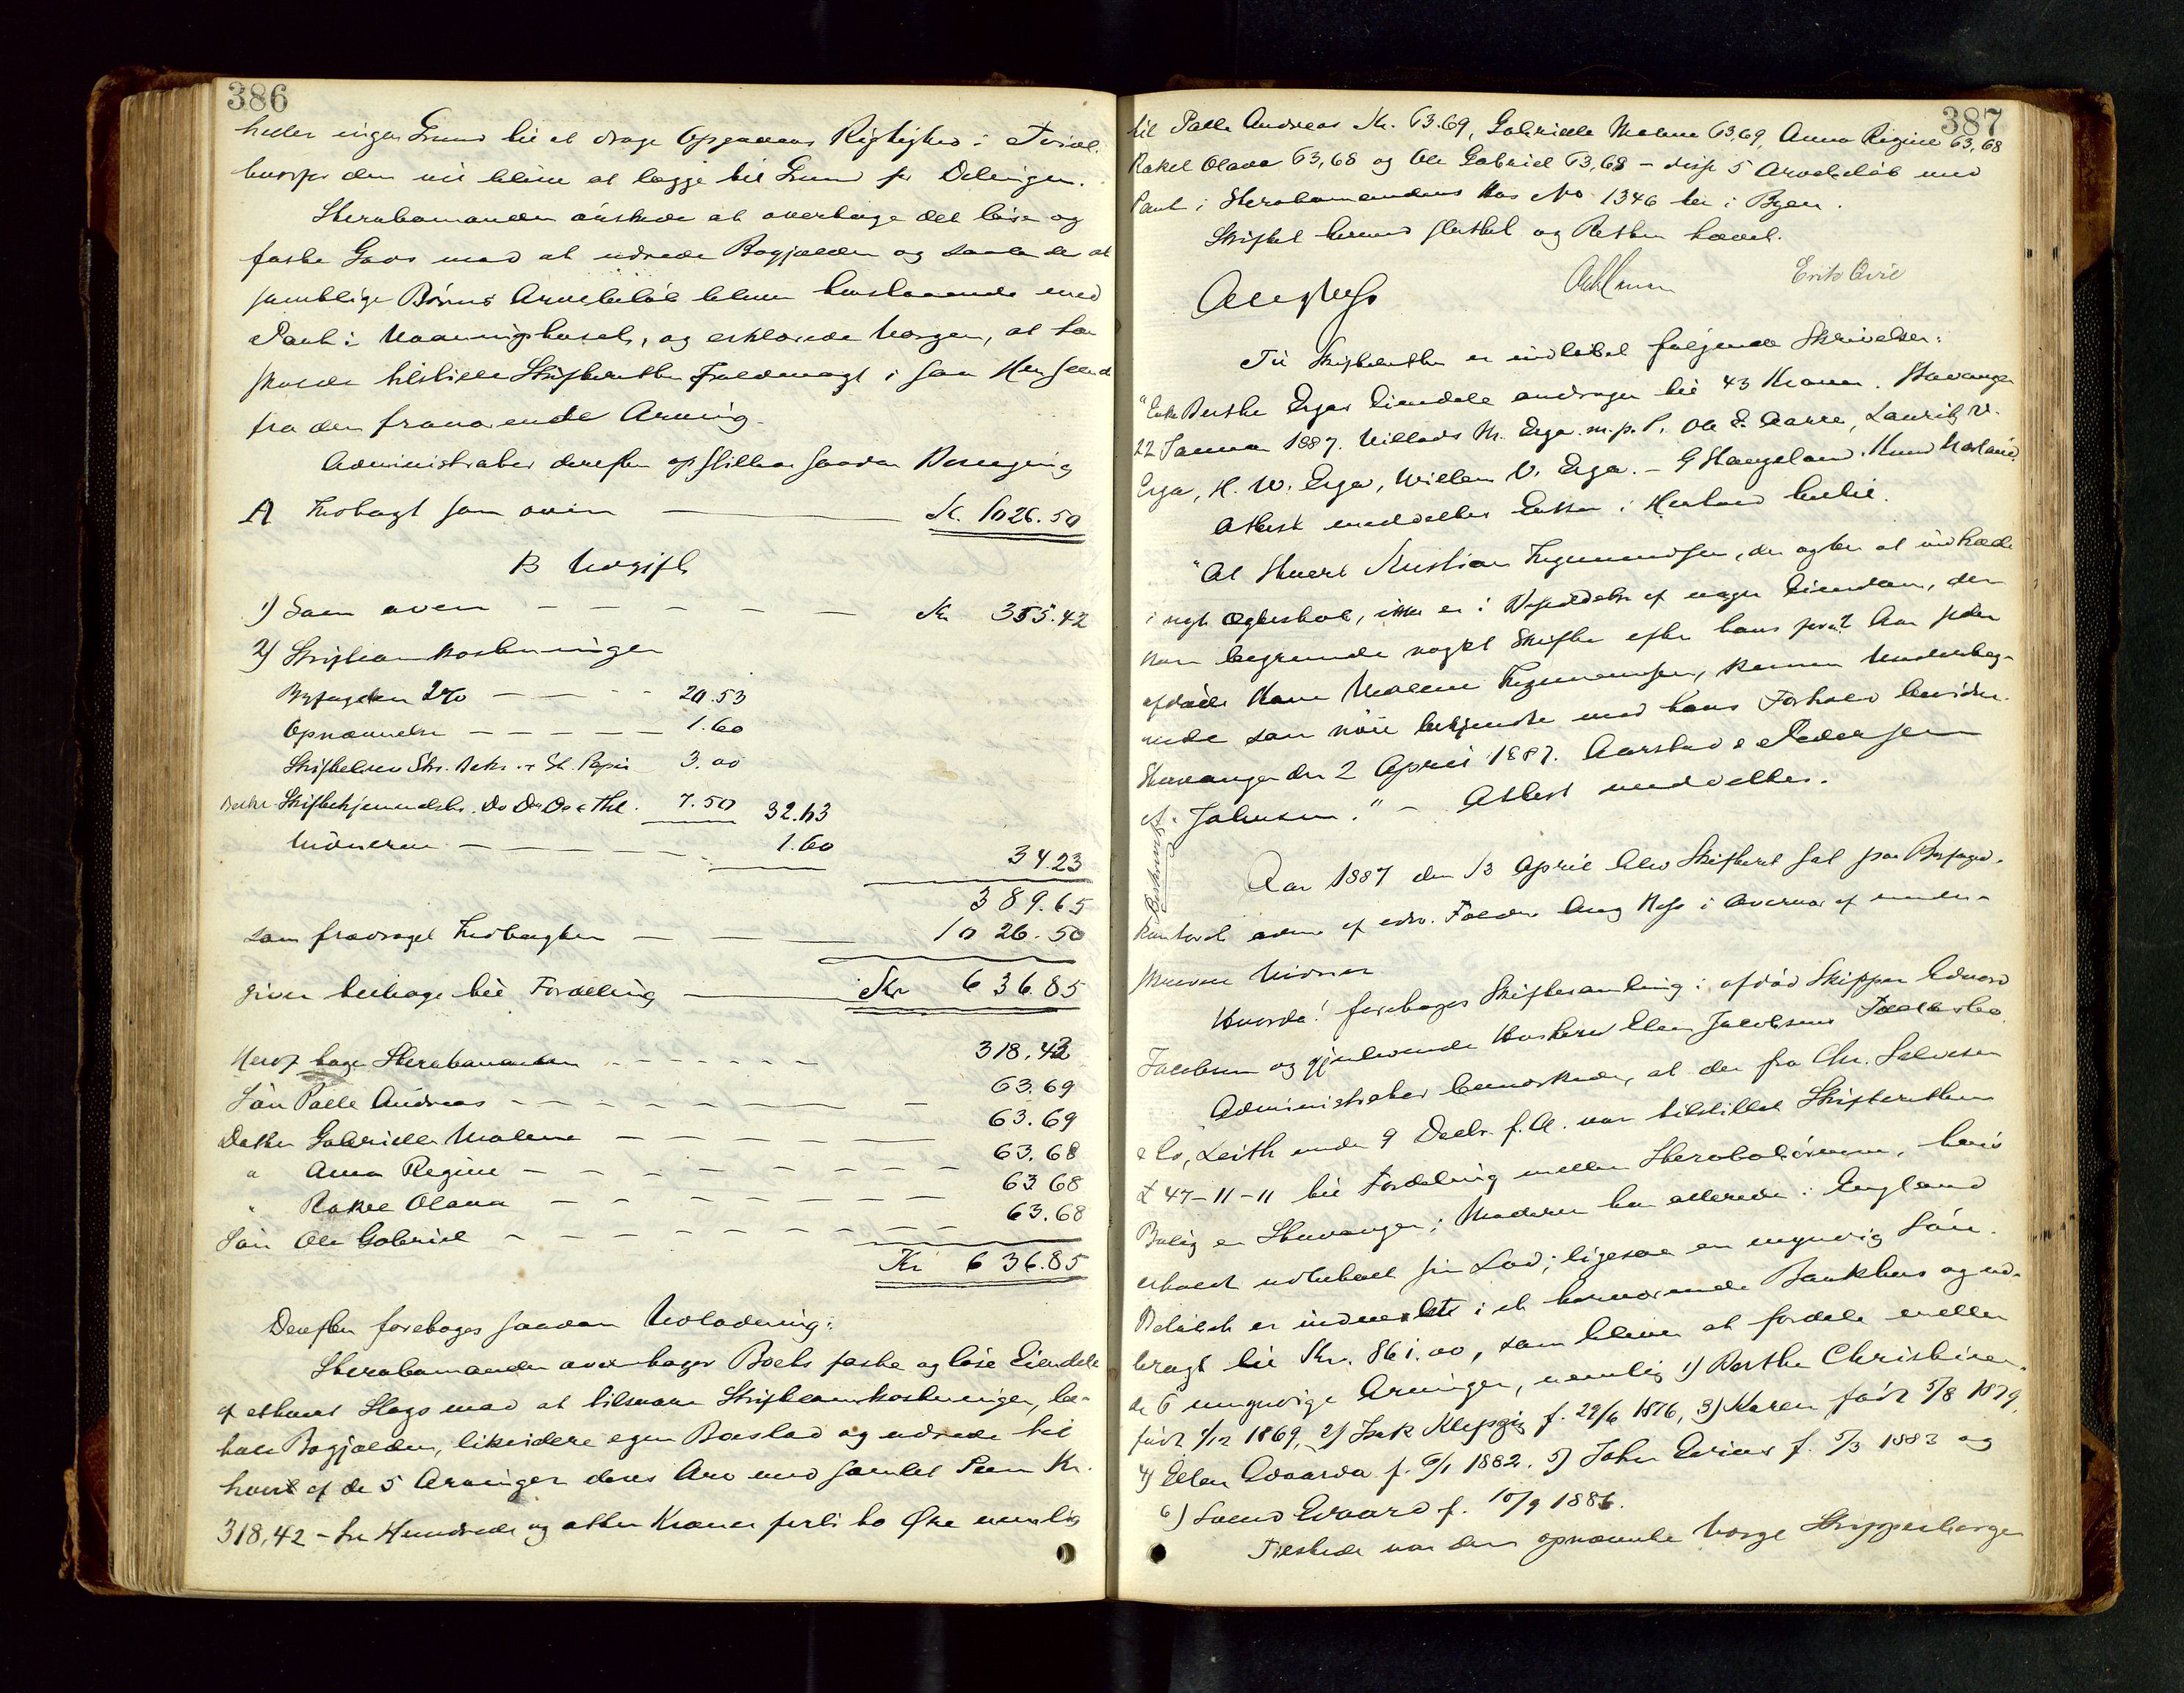 386
heller ingen Grund til at drage Opgavens Rigtighed i Tvivl
hvorfor den vil blive at lægge til Grund for Delingen.
Sterbomanden ønskede at overtage det løse og
faste Gods mod at udrede Bogjælden og saaledes at
samtlige Børns Arvebeløb bliver henstaaende med
Pant i Vaaningshuset, og erklærede Værgen, at han
skulde tilstille Skifteretten Fuldmagt i saa Henseende
fra den fraværende Arving.
Administrator derefter opstillede saadan Beregning
A Indtægt som oven Kr. 1026.50
B Udgift
1) Som oven Kr 355.42
2) Skifteomkostninger
Byfogden 2% 20.53
Opnævnelse 1.60
Skiftebrev Skr. Beks. & St. Papir 3.00
Beskr. Skiftekjendelse. Do Do Do & Thl. 7.50 32.63
Vidnerne 1.60
34.23
389.65
som fradraget Indtægten 1026.50
giver tilbage til Fordeling Kr 636.85
Heraf tager Sterbomanden 318.43
Søn Palle Andreas 63.69
Datter Gabrielle Malene 63.69
" Anna Regine 63.68
" Rakel Olava 63.68
Søn Ole Gabriel 63.68
Kr 636.85
Derefter foretages saadan Udlodning:
Sterbomanden overtager Boets faste og løse Eiendele
af ethvert Slags mod at tilsvare Skifteomkostninger, be-
tale Bogjælden, likvidere egen Boeslod og udrede til
hvert af de 5 Arvinger deres Arv med samlet Sum Kr.
318,42 – tre Hundrede og atten Kroner firti to Øre nemlig
387
til Palle Andreas Kr. 63.69, Gabrielle Malene 63,69, Anna Regine 63,68
Rakel Olava 63,68 og Ole Gabriel 63,68 – disse 5 Arvebeløb med
Pant i Sterbomandens Hus No 1346 her i Byen.
Skiftet hermed sluttet og Retten hævet.
Aug Hess Erik Qvie
Til Skifteretten er indløbet følgende Skrivelser:
"Enke Berthe Ergas Eiendele andrager til 43 Kroner. Stavanger
22 Januar 1887. Villads M. Erga. m.p.P. Ole E. Aarre, Lauritz V.
Erga, H. W. Erga, Willem V. Erga. – G Haugeland. Knud
Attest meddeltes Enken i Henhold hertil.
"At Stuert Kristian Ingemundsen, der agter at indtræde
i nyt Ægteskab, ikke er i Besiddelse af nogen Eiendom, der
kan begrunde noget Skifte efter hans for 2 Aar siden
afdøde Kone Malene Ingemundsen, kunne Undertegn-
ede som nøie bekjendte med hans Forhold bevidne.
Stavanger den 2 April 1887. Aarstad & Pedersen
A. Johnsen." – Attest meddeltes.
Beskrivning
Aar 1887 den 13 April blev Skifteret sat paa Byfoged-
kontoret adm. af edsv. Fuldm Aug Hess i Overvær af under-
skrevne Vidner
Hvorda! foretages Skiftesamling i afdød Skipper Edvard
Jacobsen og gjenlevende Hustru Elen Jacobsens Fællesbo.
Administrator bemærkede, at der fra Chr. Salvesen
& Co, Leith under 9 Decbr. f. A. var tilstillet Skifteretten
£ 47-11-11 til Fordeling mellem Sterbobørnene, hvis
Bolig er Stavanger; Moderen har allerede i England
erholdt udbetalt sin Lod; ligesaa en myndig Søn.
Beløbet er indsat i et herværende Bankhus og ud-
bragt til Kr. 861.00, som bliver at fordele mellem
de 6 umyndige Arvinger, nemlig 1) Berthe Christine
født 5/12 1869, 2) Isak f. 29/6 1876, 3) Karen født 5/8 1879,
4) Ellen Edvarda f. 6/1 1882. 5) John Evind f. 5/3 1883 og
6) Svend Edvard f. 10/9 1886.
Tilstede var den opnævnte Værge Skipperborger